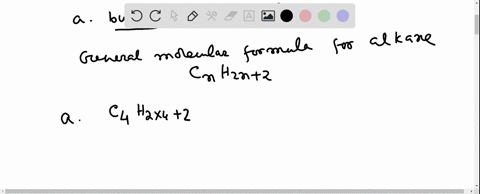 a. bu
General molecular formula for alkane
CnH2n+2
a. C4H2x4+2